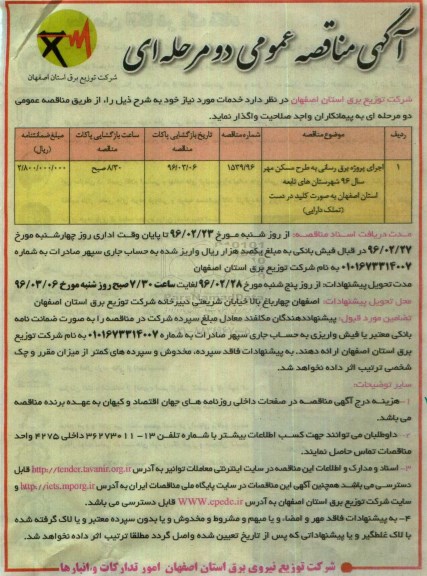 آگهی مناقصه عمومی دو مرحله‌ای
شرکت توزیع برق استان اصفهان
شرکت توزیع برق استان اصفهان در نظر دارد خدمات مورد نیاز خود به شرح ذیل را، از طریق مناقصه عمومی
دو مرحله ای به پیمانکاران واجد صلاحیت واگذار نماید.
ردیف موضوع مناقصه شماره مناقصه تاریخ بازگشایی پاکات مناقصه ساعت بازگشایی پاکات مناقصه مبلغ ضمانتنامه (ریال)
۱ اجرای پروژه برق رسانی به طرح مسکن مهر ۱۵۳۹/۹۶ ۹۶/۰۳/۰۶ ۸/۳۰ صبح ۲/۸۰۰/۰۰۰/۰۰۰
سال ۹۶ شهرستان های تابعه
استان اصفهان به صورت کلید در دست
(تملک دارایی)
مدت دریافت اسناد مناقصه: از روز شنبه مورخ ۹۶/۰۲/۲۳ تا پایان وقت اداری روز چهارشنبه مورخ
۹۶/۰۲/۲۷ در قبال فیش بانکی به مبلغ یکصد هزار ریال واریز شده به حساب جاری سپهر صادرات به شماره
۰۱۰۱۶۷۳۳۱۴۰۰۷ به نام شرکت توزیع برق استان اصفهان
مدت تحویل پیشنهادات: از روز پنج شنبه مورخ ۹۶/۰۲/۲۸ لغایت ساعت ۷/۳۰ صبح روز شنبه مورخ ۹۶/۰۳/۰۶
محل تحویل پیشنهادات: اصفهان چهارباغ بالا خیابان شریعتی دبیرخانه شرکت توزیع برق استان اصفهان
تضامین مورد قبول: پیشنهاددهندگان مکلفند معادل مبلغ سپرده شرکت در مناقصه را به صورت ضمانت نامه
بانکی معتبر یا فیش واریزی به حساب جاری سپهر صادرات به شماره ۰۱۰۱۶۷۳۳۱۴۰۰۷ به نام شرکت توزیع
برق استان اصفهان ارائه دهند. به پیشنهادات فاقد سپرده، مخدوش و سپرده های کمتر از میزان مقرر و چک
شخصی ترتیب اثر داده نخواهد شد.
سایر توضیحات:
۱- هزینه درج آگهی مناقصه در صفحات داخلی روزنامه های جهان اقتصاد و کیهان به عهده برنده مناقصه
می باشد.
۲- داوطلبان می توانند جهت کسب اطلاعات بیشتر با شماره تلفن ۱۳-۳۶۲۷۳۰۱۱ داخلی ۴۲۷۵ واحد
مناقصات تماس حاصل نمایند.
۳- اسناد و مدارک و اطلاعات این مناقصه در سایت اینترنتی معاملات توانیر به آدرس http://tender.tavanir.org.ir قابل
دسترسی می باشد همچنین آگهی این مناقصات در سایت پایگاه ملی مناقصات ایران به آدرس http://iets.mporg.ir و
سایت شرکت توزیع برق استان اصفهان به آدرس WWW.epedc.ir قابل دسترسی می باشد.
۴- به پیشنهادات فاقد مهر و امضاء و یا مبهم و مشروط و مخدوش و یا بدون سپرده معتبر و یا لاک گرفته شده
یا لاک غلطگیر و یا پیشنهاداتی که پس از تاریخ تعیین شده واصل گردد مطلقا ترتیب اثر داده نخواهد شد.
شرکت توزیع نیروی برق استان اصفهان امور تدارکات و انبارها